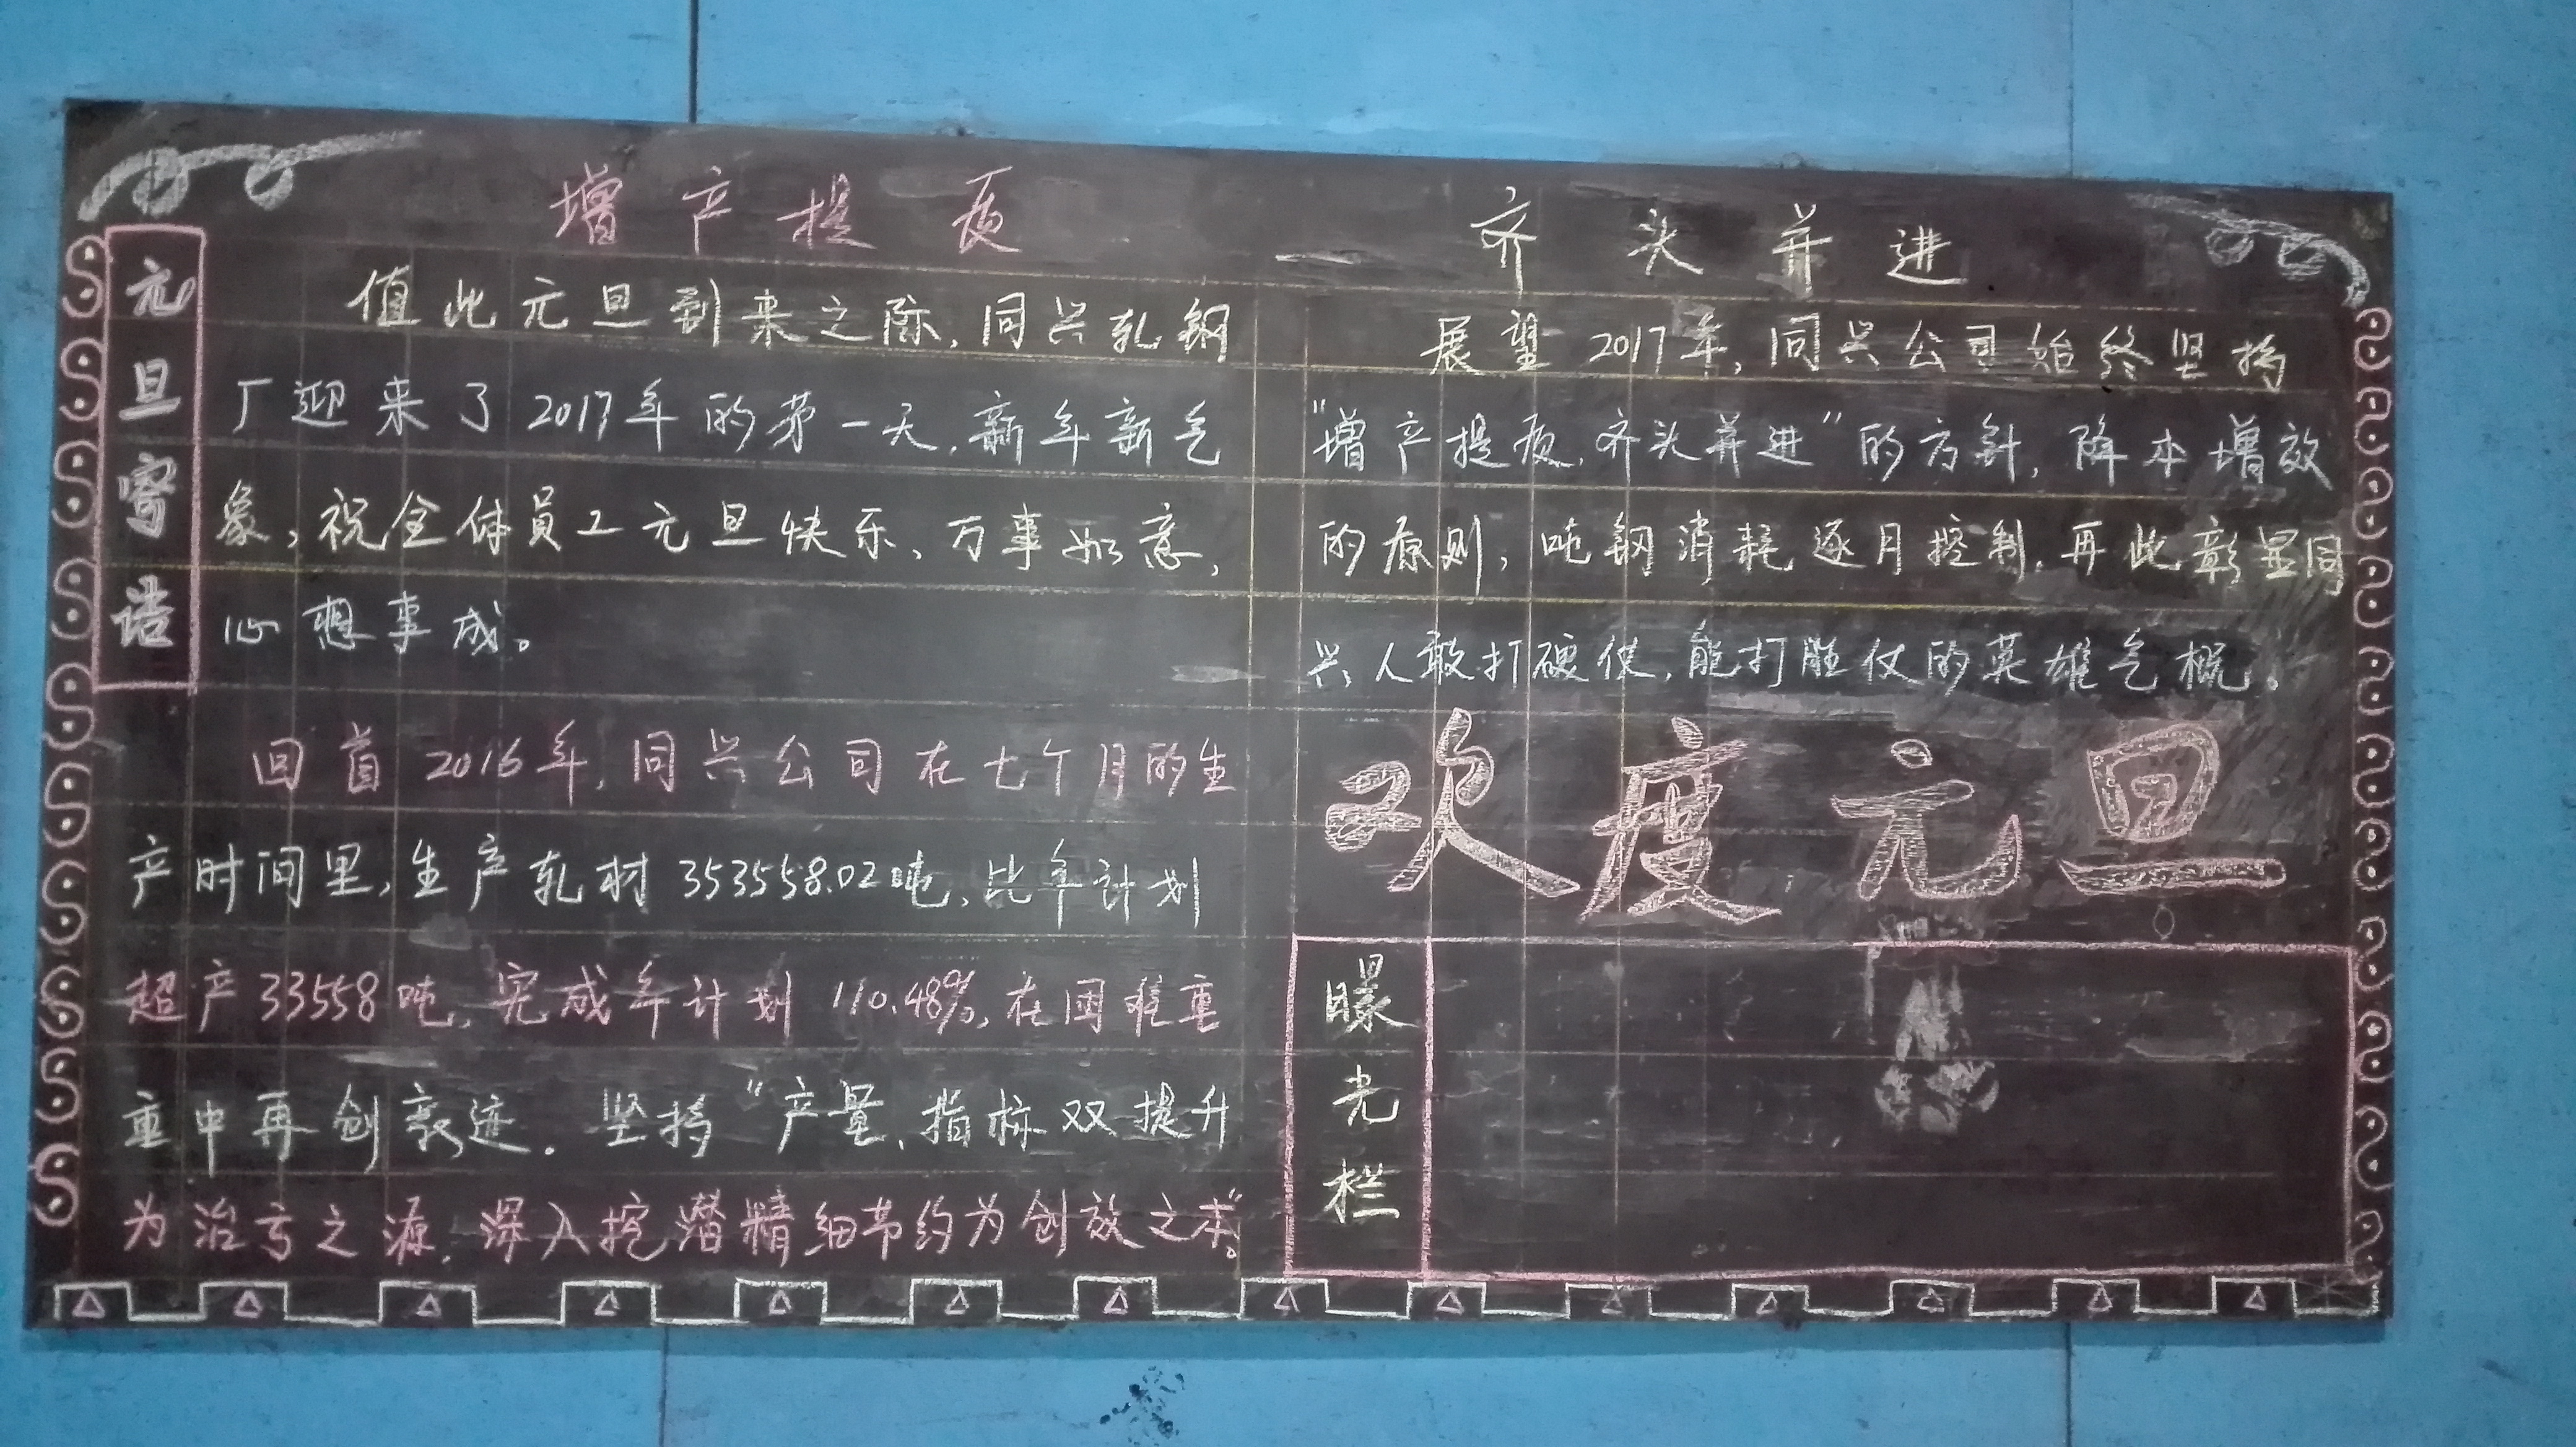 增产提质
齐头并进
元旦寄语
值此元旦到来之际,同兴轧钢
厂迎来了2017年的第一天,新年新气
象,祝全体员工元旦快乐、万事如意,
心想事成。
回首2016年,同兴公司在七个月的生
产时间里,生产轧材353558.02吨,比年计划
超产33558吨,完成年计划110.48%,在困难重
重中再创奇迹。坚持“产量、指标双提升
为治亏之源,深入挖潜精细节约为创效之本”。
展望2017年,同兴公司始终坚持
“增产提质,齐头并进”的方针,降本增效
的原则,吨钢消耗逐月控制,再此彰显同
兴人敢打硬仗,能打胜仗的英雄气概。
欢度元旦
曝光栏